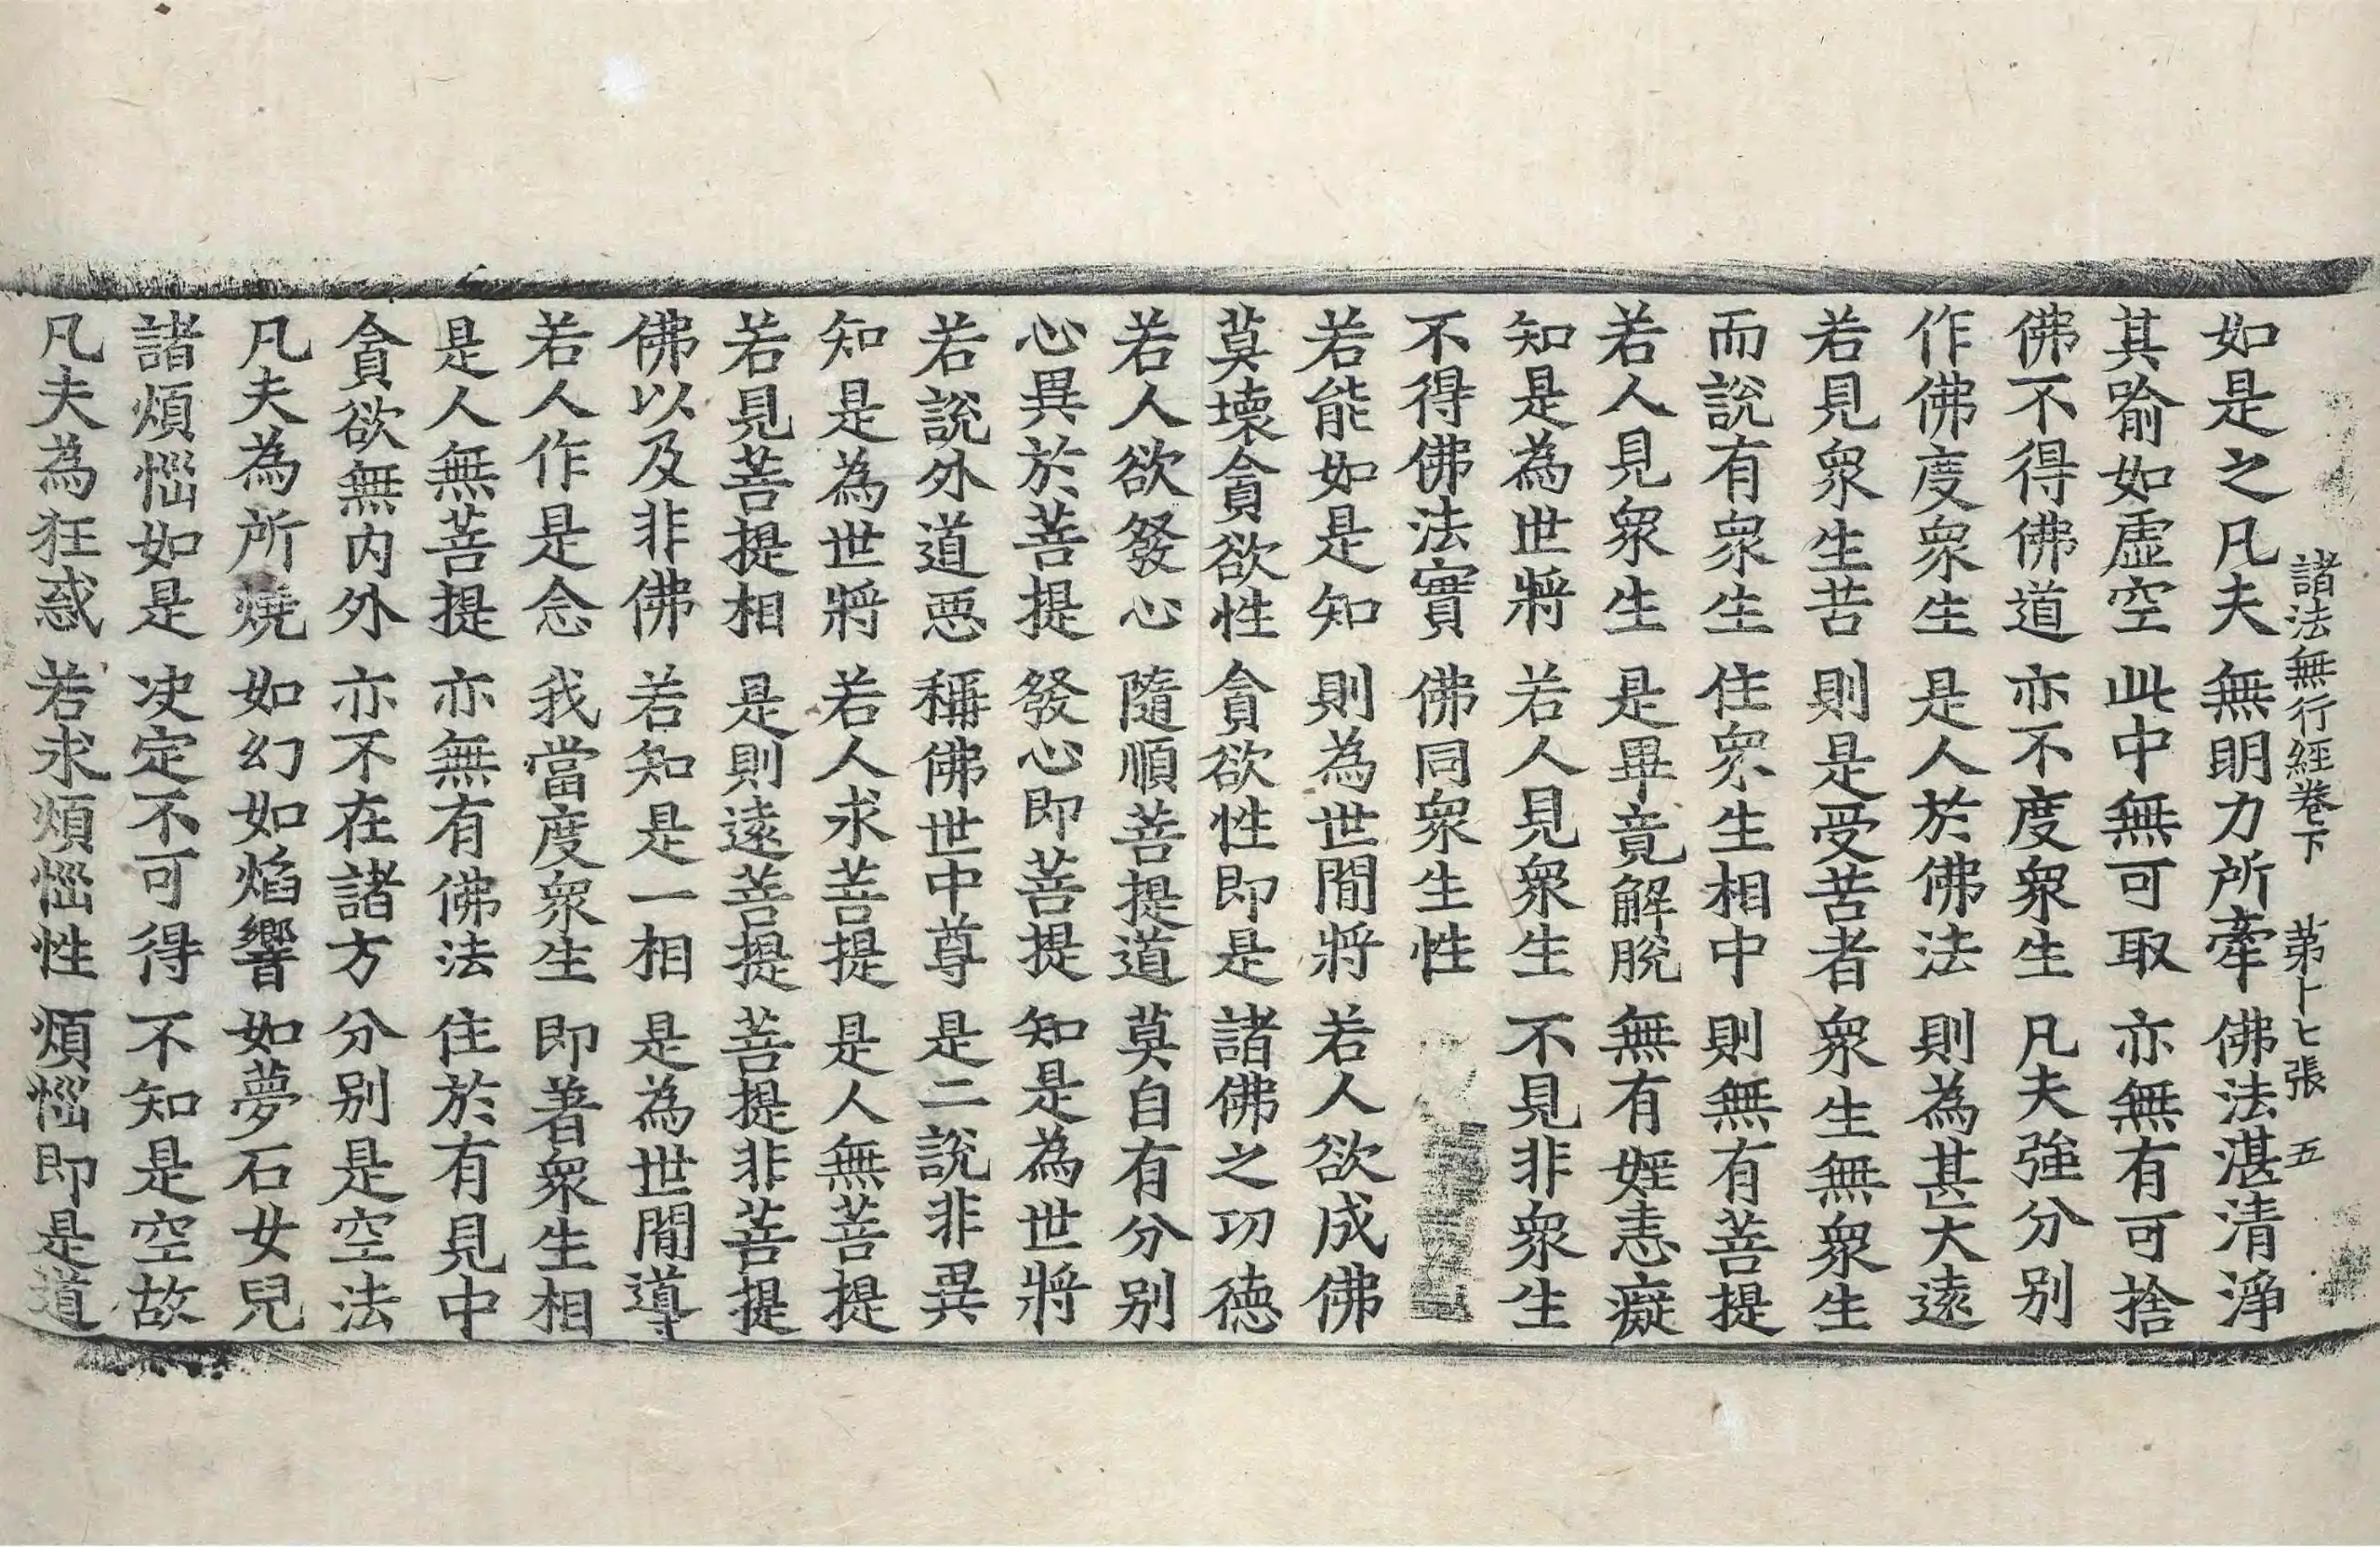 諸法無行經卷下 第十七張 五
如是之凡夫 無明力所牽 佛法湛清淨
其喻如虛空 此中無可取 亦無有可捨
佛不得佛道 亦不度衆生 凡夫強分別
作佛度衆生 是人於佛法 則為甚大遠
若見衆生苦 則是受苦者 衆生無衆生
而說有衆生 住衆生相中 則無有菩提
若人見衆生 是畢竟解脫 無有婬恚癡
知是為世將 若人見衆生 不見非衆生
不得佛法實 佛同衆生性
若能如是知 則為世間將 若人欲成佛
莫壞貪欲性 貪欲性即是 諸佛之功德
若人欲發心 隨順菩提道 莫自有分別
心異於菩提 發心即菩提 知是為世將
若說外道惡 稱佛世中尊 是二說非異
知是為世將 若人求菩提 是人無菩提
若見菩提相 是則遠菩提 菩提非菩提
佛以及非佛 若知是一相 是為世間導
若人作是念 我當度衆生 即著衆生相
是人無菩提 亦無有佛法 住於有見中
貪欲無内外 亦不在諸方 分別是空法
凡夫為所燒 如幻如焰響 如夢石女兒
諸煩惱如是 决定不可得 不知是空故
凡夫為狂惑 若求煩惱性 煩惱即是道